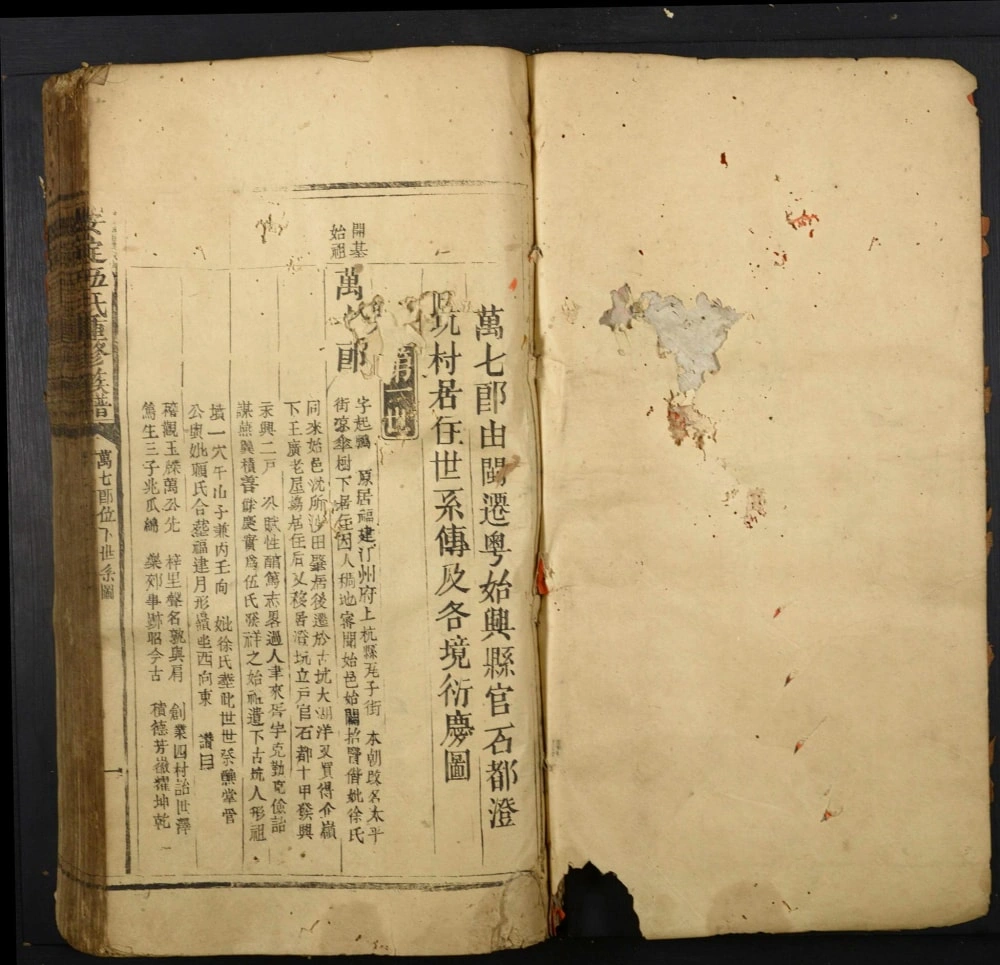 萬七郎由閩遷粵始興縣官石都澄
坑村居住世系傳及各境衍慶圖
第一世
開基
始祖
萬七郎
字起鵾 原居福建汀州府上杭縣瓦子街 本朝改名太平
街凉傘樹下居住因人稠地窄聞始邑始關招賢偕妣徐氏
同來始邑沈所沙田肇居後遷於古坑大湖洋又買得介嶺
下王廣老屋塲居住后又移居澄坑立戶官石都十甲發興
永興二戶 公賦性醇篤志畧過人聿來胥宇克勤克儉詒
謀燕翼積善餘慶實爲伍氏發祥之始祖遺下古坑人形祖
墳一穴午山子兼丙壬向 妣徐氏塟 世世祭 堂管
公與妣顧氏合塟福建月形 坐西向東 讚曰
 觀玉牒萬公先 梓里聲名孰與肩 創業四村詒世澤
篤生三子兆瓜綿 事跡昭今古 積德芳徽耀坤乾
安定伍氏重修族譜
萬七郎位下世系圖
一